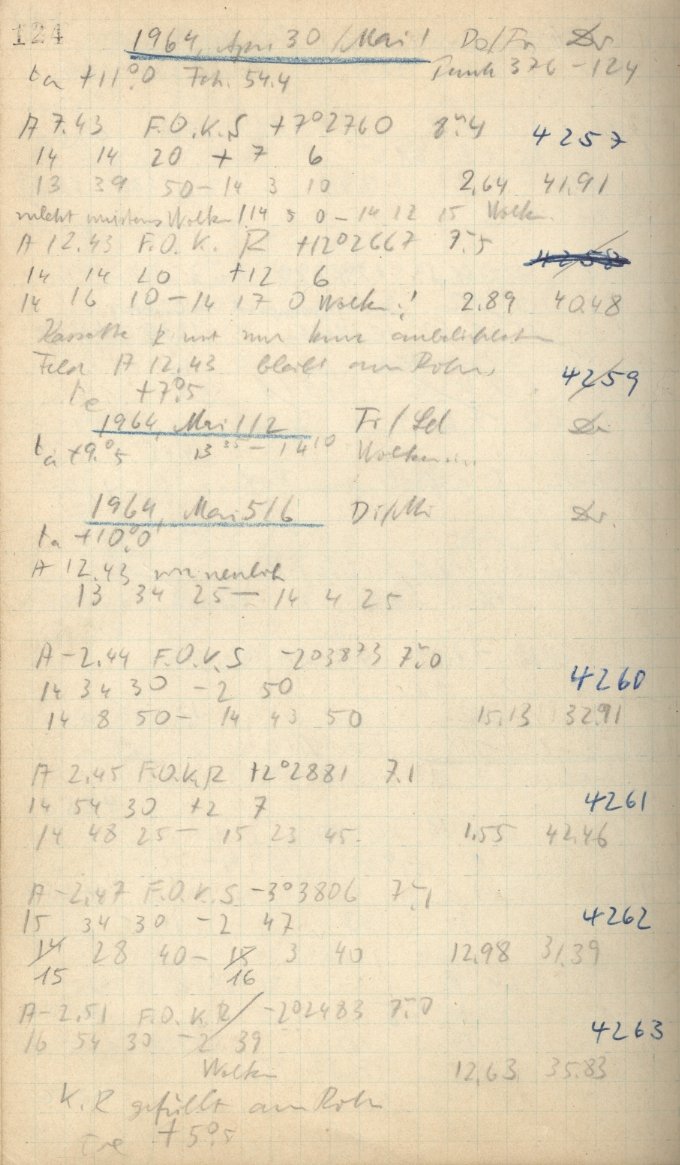 124
1964, Apr. 30 / Mai 1 Do/Fr Dr
ta +11°0 Fch. 54.4 376-124
A 7.43 F.O.K.S +7°2760 8.m4 4257
14 14 20 +7 6
13 39 50 - 14 3 10 2,64 41,91
nicht Wolken 14 5 0 - 14 12 15 Wolken
A 12.43 F.O.K. R +12°2667 7.m5 4258
14 14 20 +12 6
14 16 10 - 14 17 0 Wolken! 2.89 40.48
Kassette R nur kurz
Feld A 12.43 bleibt am Rohr.
te +7°5 4259
1964, Mai 1/2 Fr/ Dr
ta +9°5 13 35 - 14 10 Wolken...
1964, Mai 5/6 Di/Mi Dr.
ta +10°0
A 12.43 wie neulich
13 34 25 - 14 4 25
A -2.44 F.O.K.S -2°3873 7.m0 4260
14 34 30 -2 50
14 8 50 - 14 43 50 15.13 32.91
A 2.45 F.O.K.R +2°2881 7.1 4261
14 54 30 +2 7
14 48 25 - 15 23 45. 1.55 42.46
A -2.47 F.O.K.S -3°3806 7.m1
15 34 30 -2 47 4262
14 28 40 - 15 3 40 12.98 31.39
15 16
A -2.51 F.O.K.R -2°2483 7.m0
16 54 30 -2 39 4263
Wolken 12.63 35.83
K.R gefüllt am Rohr
te +5°5